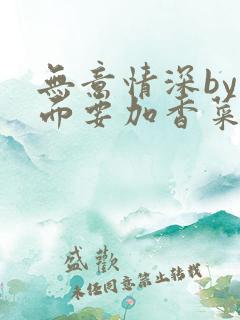 無意情深by
而要加香菜
盛歡
未経同意禁止转载